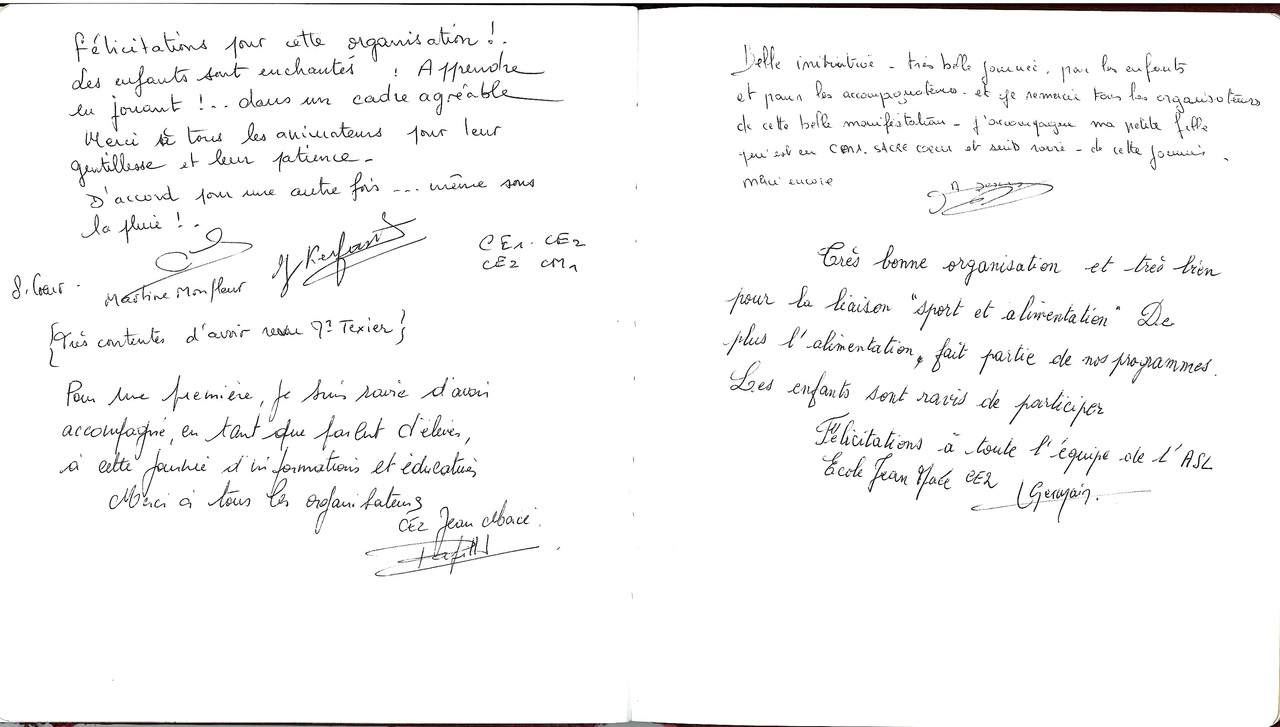 Félicitations pour cette organisation !.
Les enfants sont enchantés ! Apprendre
en jouant !... dans un cadre agréable
Merci à tous les animateurs pour leur
gentillesse et leur patience -
D'accord pour une autre fois ... même sous
la pluie ! .
S. Coeur .
Martine Monfleur
Kerfant
CE1. CE2
CE2 CM1
{Très contentes d'avoir revu Texier}
Pour une première, je suis ravie d'avoir
accompagné, en tant que parent d'élèves,
à cette journée d'informations et éducatives
Merci à tous les organisateurs
CE2 Jean Macé.
Belle initiative - très belle journée, par les enfants
et pour les accompagnateurs - et je remercie tous les organisateurs
de cette belle manifestation - j'accompagne ma petite fille
qui est en CM1. SACRE COEUR et suis ravie - de cette journée.
merci encore
Très bonne organisation et très bien
pour la liaison "sport et alimentation" De
plus l'alimentation, fait partie de nos programmes.
Les enfants sont ravis de participer
Félicitations à toute l'équipe de l'ASL
Ecole Jean Macé CE2
Germain.